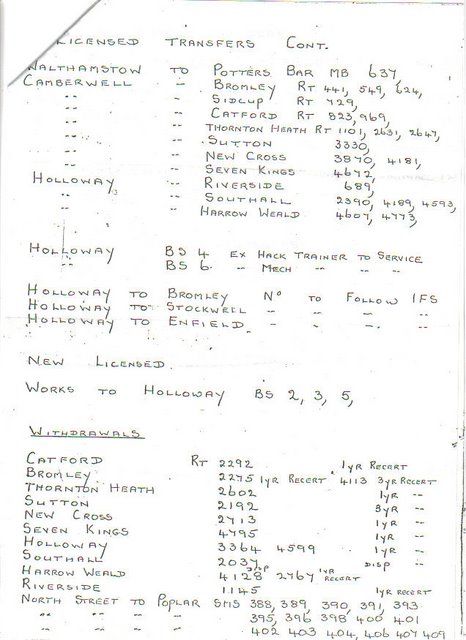 LICENSED TRANSFERS CONT.
WALTHAMSTOW TO POTTERS BAR MB 637
CAMBERWELL " BROMLEY RT 441, 549, 624,
" " SIDCUP RT 729,
" " CATFORD RT 823, 969,
" " THORNTON HEATH RT 1101, 2631, 2647,
" " SUTTON 3330,
" " NEW CROSS 3870, 4181,
" " SEVEN KINGS 4672,
HOLLOWAY " RIVERSIDE 689,
" " SOUTHALL 2390, 4189, 4593,
" " HARROW WEALD 4607, 4773,
HOLLOWAY BS 4 EX HACK TRAINER TO SERVICE
" BS 6 " MECH " " "
HOLLOWAY TO BROMLEY Nº TO FOLLOW IFS
HOLLOWAY TO STOCKWELL " " " "
HOLLOWAY TO ENFIELD " " " "
NEW LICENSED.
WORKS TO HOLLOWAY BS 2, 3, 5,
WITHDRAWALS
CATFORD RT 2292 1YR RECERT
BROMLEY 2275 1YR RECERT 4113 3YR RECERT
THORNTON HEATH 2602 1YR "
SUTTON 2192 3YR "
NEW CROSS 2713 1YR "
SEVEN KINGS 4795 1YR "
HOLLOWAY 3364 4599 1YR "
SOUTHALL 2037 DISP "
HARROW WEALD 4128 DISP 2767 1YR RECERT
RIVERSIDE 1145 1YR RECERT
NORTH STREET TO POPLAR SMS 388, 389, 390, 391, 393
" " " " 395, 396 398 400 401
" " " " 402 403 404, 406 407 409